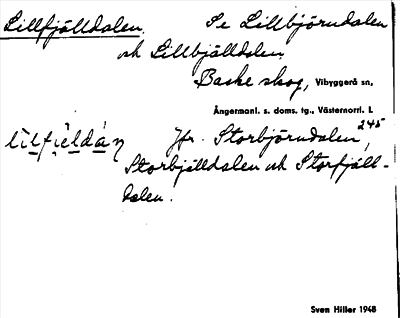 Lillfjälldalen. Se Lillbjörndalen
och Lillbjälldalen
Baske skog, Vibyggerå sn,
Ångermanl. s. doms. tg., Västernorrl. l.
245
lìlfi̯eldán Jfr. Storbjörndalen,
Storbjälldalen och Storfjäll-
dalen.
Sven Hiller 1948